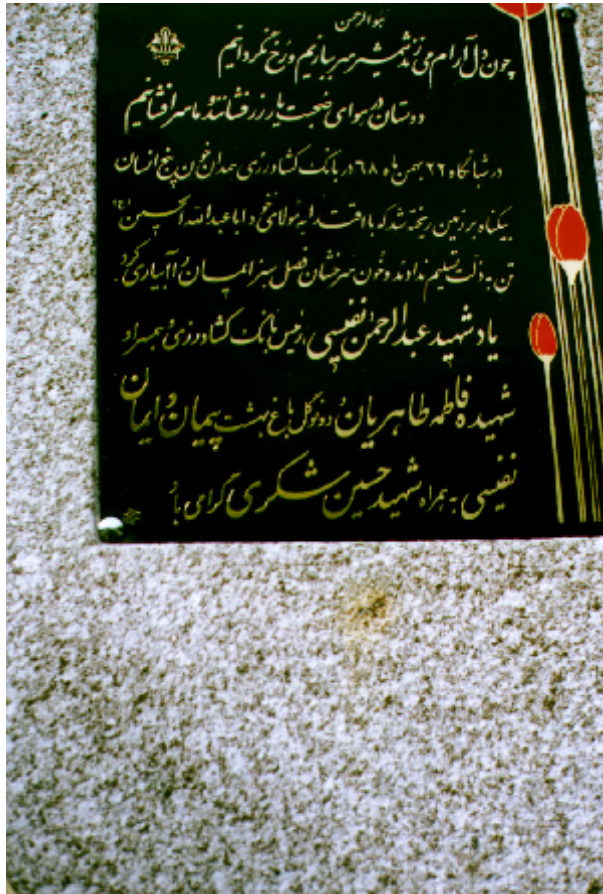 هوالرحمن
چون دلآرام می زند شمشیر سر ببازیم و رخ نگردانیم
دوستان در هوای صحبت یار زر فشانند و ما سر افشانیم
در شبانگاه ۲۲ بهمن ماه ۶۸ در بانک کشاورزی همدان خون پنج انسان
بیگناه بر زمین ریخته شد که با اقتدا به مولای خود ابا عبدالله الحسین (ع)
تن به ذلت تسلیم ندادند و خون سرخشان فصل سبز ایمان را آبیاری کرد.
یاد شهید عبدالرحمن نفیسی رئیس بانک کشاورزی و همسر او
شهیده فاطمه طاهریان و دو نوگل باغ بهشت پیمان و ایمان
نفیسی به همراه شهید حسین شکری گرامی باد